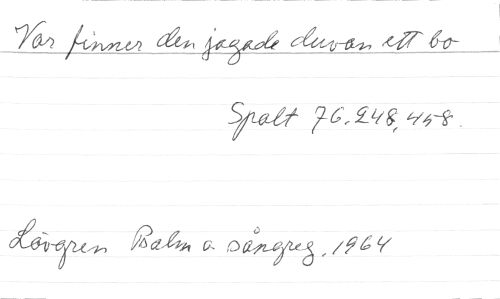 Var finner den jagade duvan ett bo
Spalt 76, 248, 458.
Lövgren Psalm o. sångreg. 1964